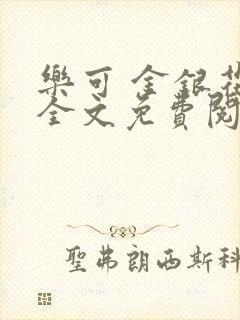 樂可 金銀花
全文免費閱
聖弗朗西斯科